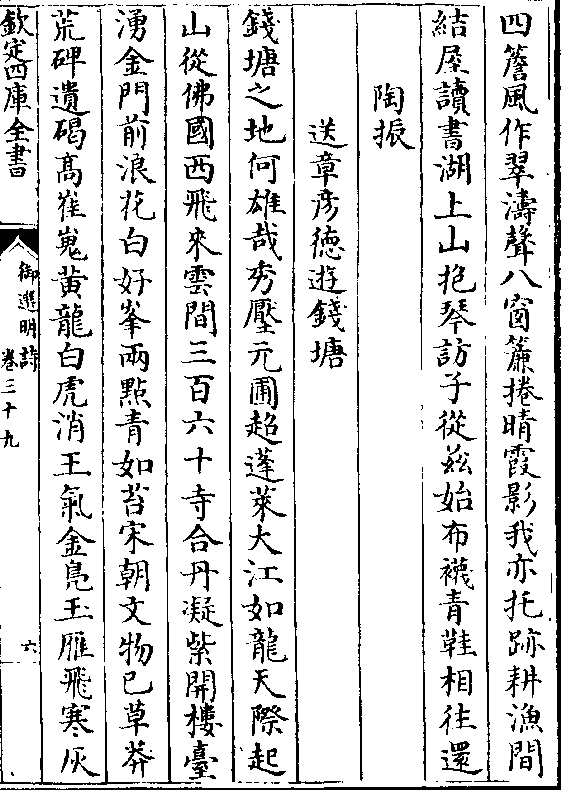 四簷風作翠濤聲八窗簾捲晴霞影我亦托跡耕漁間
結屋讀書湖上山抱琴訪子從兹始布襪青鞋相往還
陶振
送章彦徳遊錢塘
錢塘之地何雄哉秀壓元圃超蓬萊大江如龍天際起
山從佛國西飛來雲間三百六十寺合丹凝紫開樓臺
湧金門前浪花白好峯兩點青如苔宋朝文物已草莽
荒碑遺碣髙崔嵬黄龍白虎消王氣金鳬玉雁飛寒灰
欽定四庫全書
御選明詩
卷三十九
六